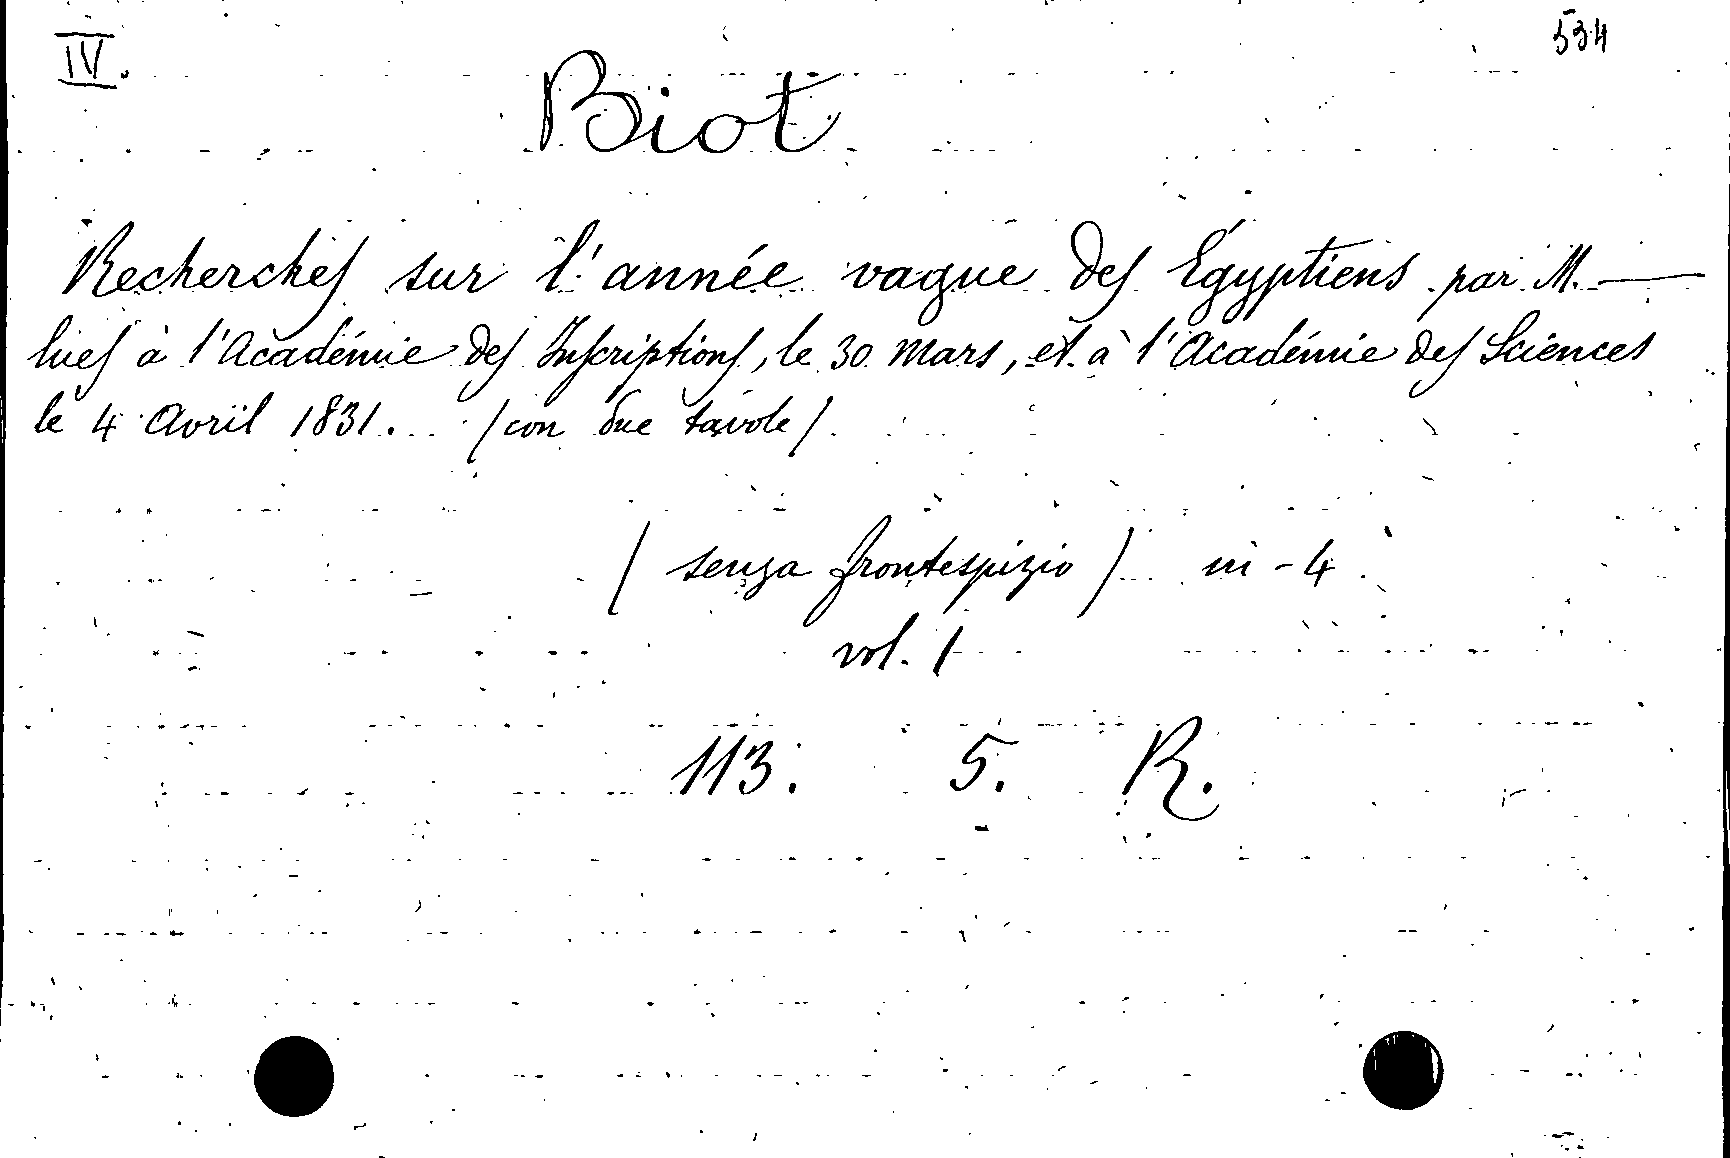 IV. 534
Biot
Recherches sur l'année vague des Égyptiens par M. —
lues à l'Académie des Inscriptions, le 30 Mars, et à l'Académie des Sciences
le 4 Avril 1831. (con due tavole)
(senza frontespizio) in-4
vol. 1
113. 5. R.